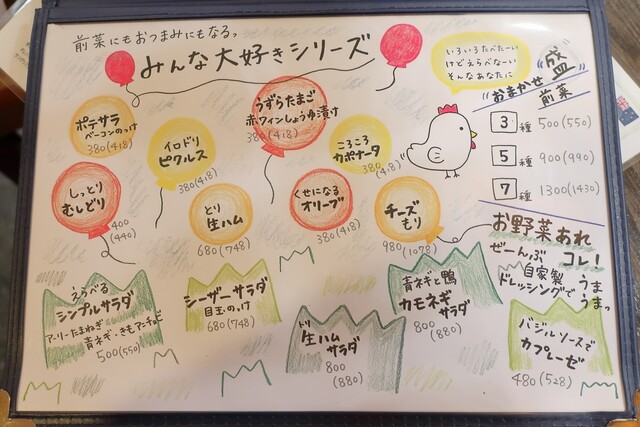 前菜にもおつまみにもなるっ
みんな大好きシリーズ
いろいろたべたーい
けどえらべなーい
そんなあなたに
おまかせ
前菜
盛
3種 500(550)
5種 900(990)
7種 1300(1430)
ポテサラ
ベーコンのっけ
380(418)
イロドリ
ピクルス
380(418)
うずらたまご
赤ワインしょうゆ漬け
380(418)
ころころ
カポナータ
380(418)
しっとり
むしどり
400
(440)
とり
生ハム
680(748)
くせになる
オリーブ
380(418)
チーズ
もり
980(1078)
お野菜あれ
コレ!
ぜーんぶ
自家製
ドレッシングで
うま
うまっ
えらべる
シンプルサラダ
アーリーたまねぎ
青ネギ・きもアーチョビ
500(550)
シーザーサラダ
目玉のっけ
680(748)
トリ
生ハム
サラダ
800
(880)
青ネギと鴨
カモネギサラダ
800
(880)
バジルソースで
カプレーゼ
480(528)